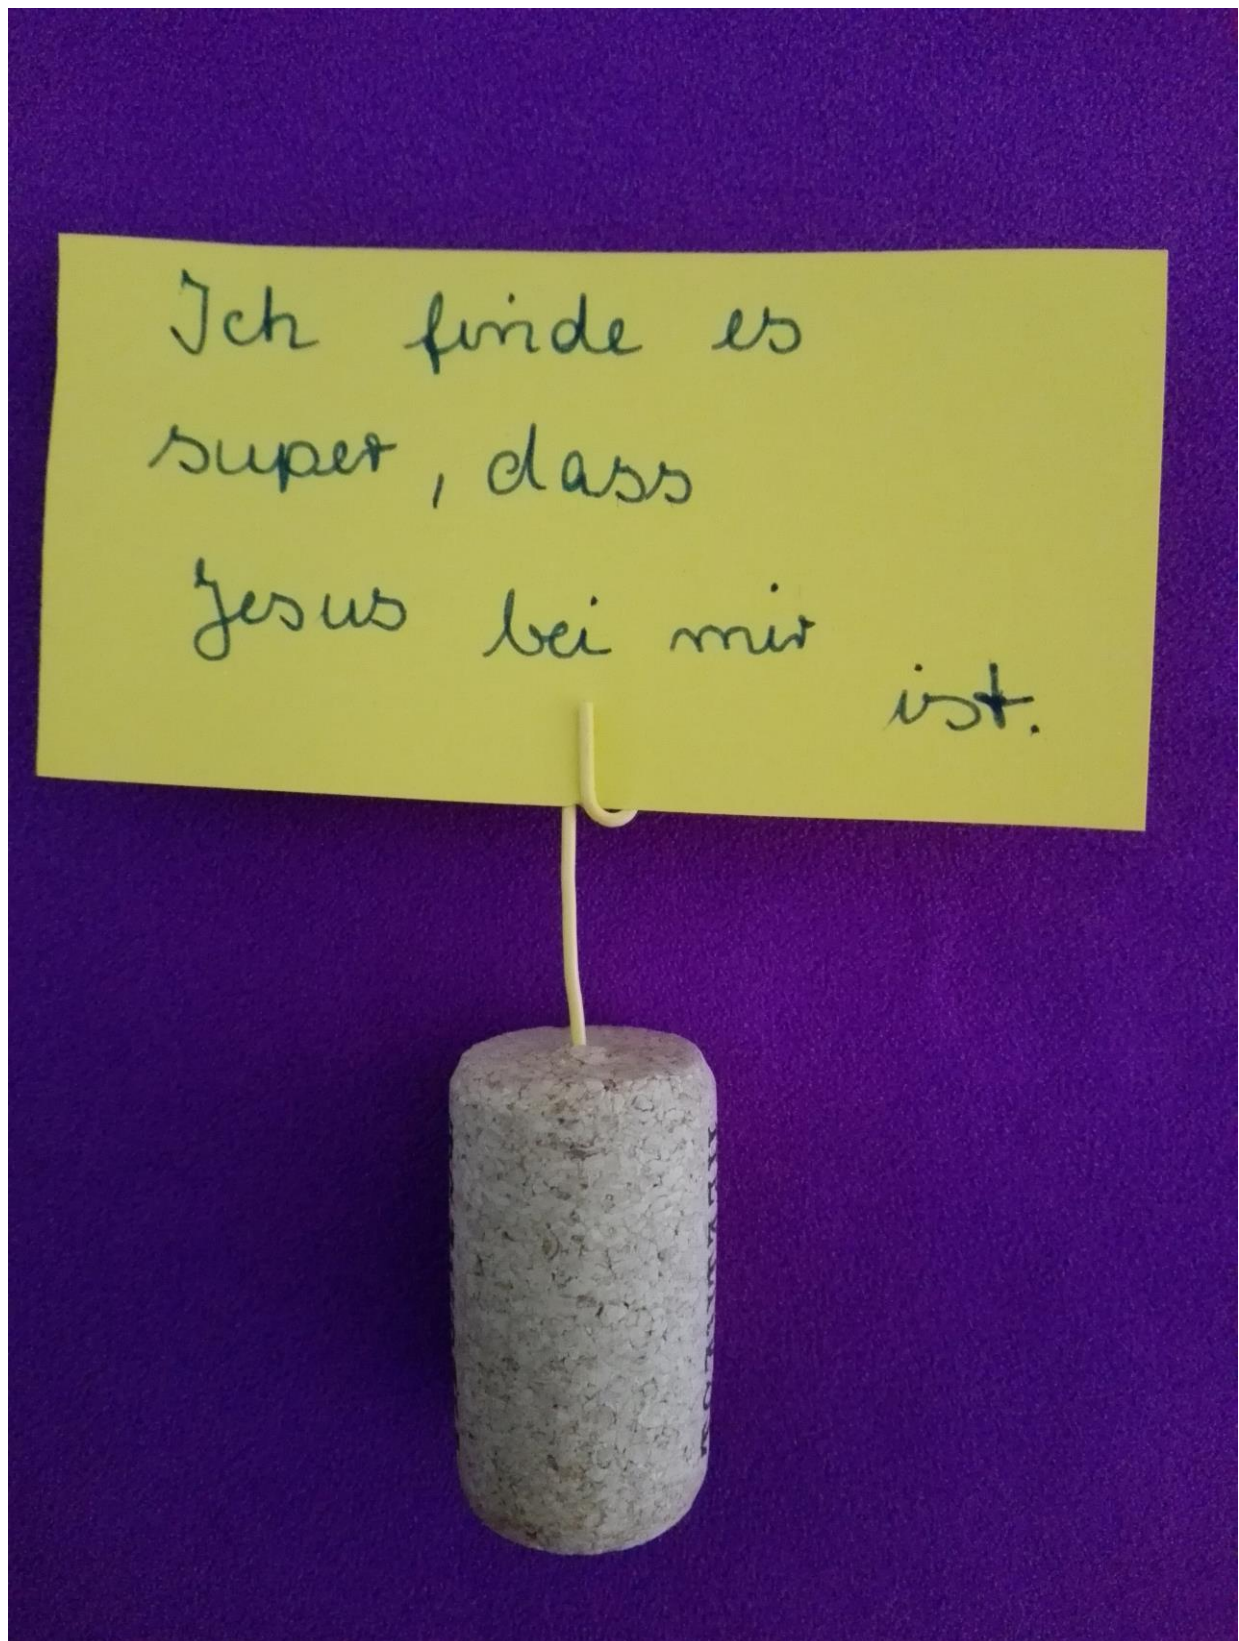 Ich finde es
super, dass
Jesus bei mir
ist.